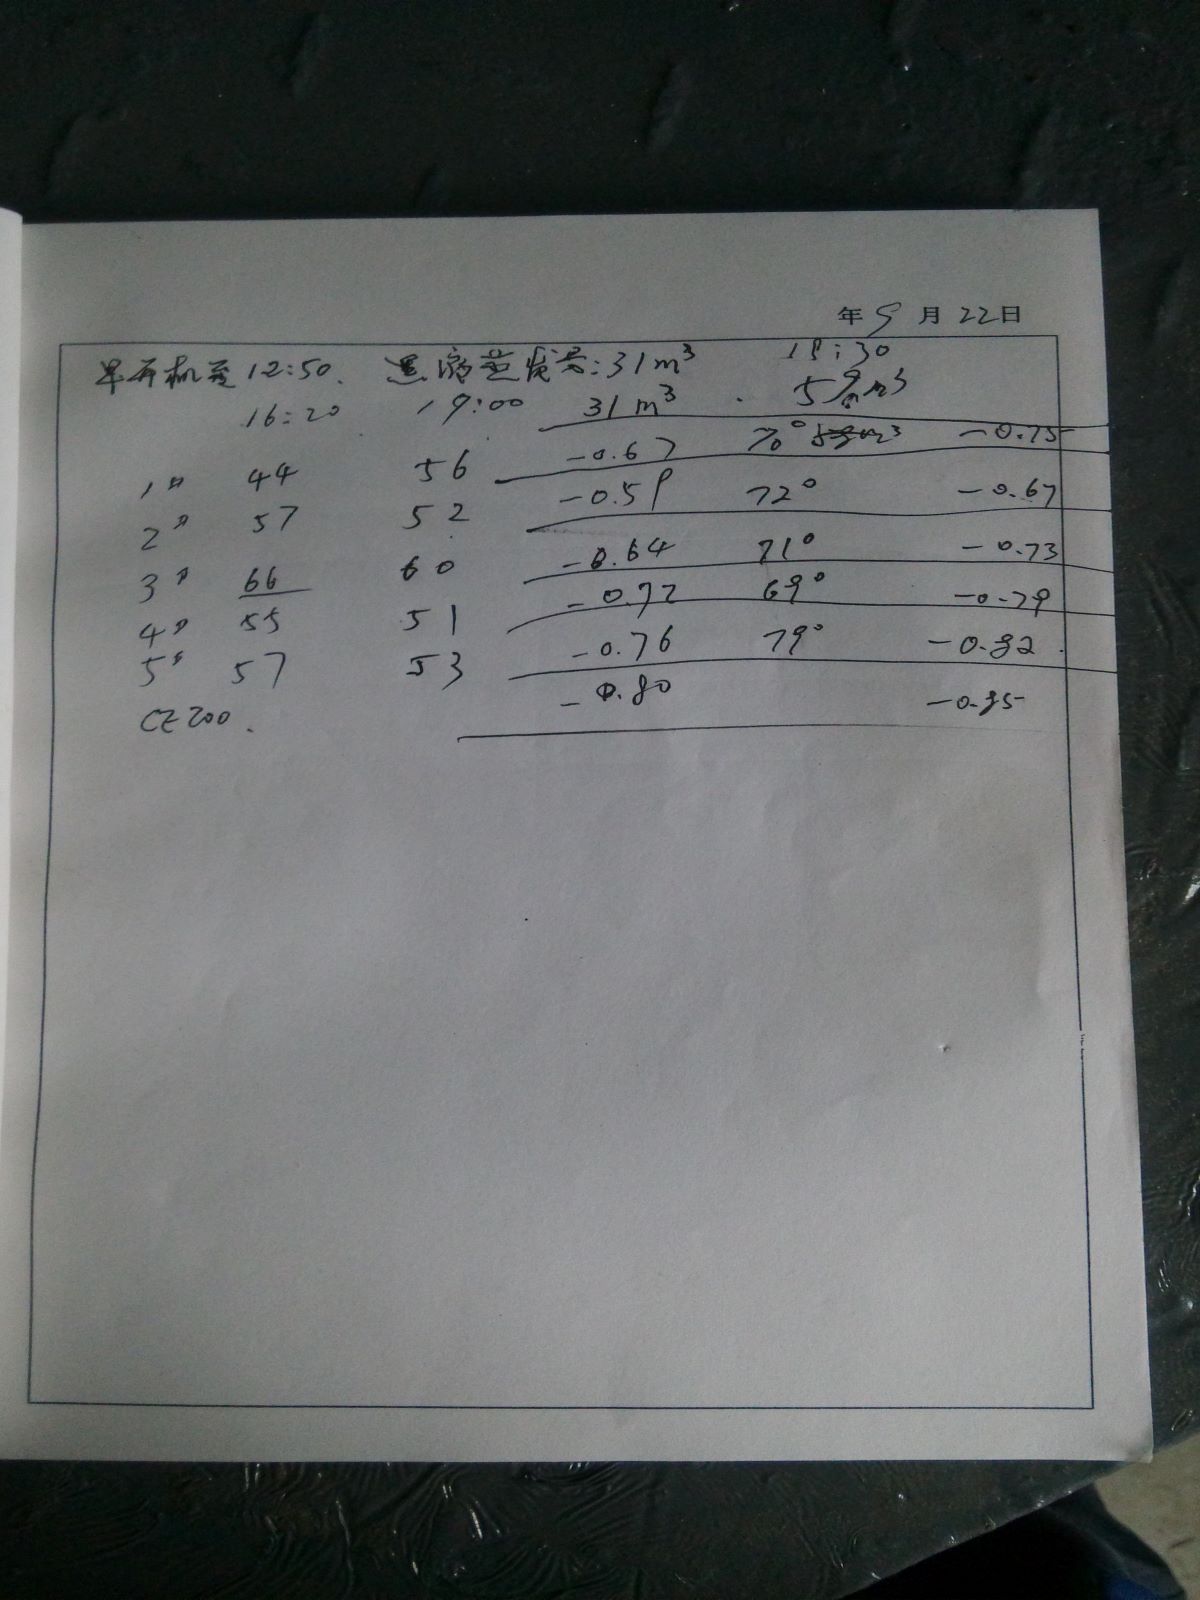 年 9 月 22 日
早开机至 12:50. 蒸发: 31 m³ 18:30
16:20 19:00 31 m³ . 59 m³
-0.67 70° -0.75
1# 44 56 -0.59 72° -0.67
2# 57 52 -0.64 71° -0.73
3# 66 60 -0.72 69° -0.79
4# 55 51 -0.76 79° -0.82
5# 57 53 -0.80 -0.85
CZ 200.